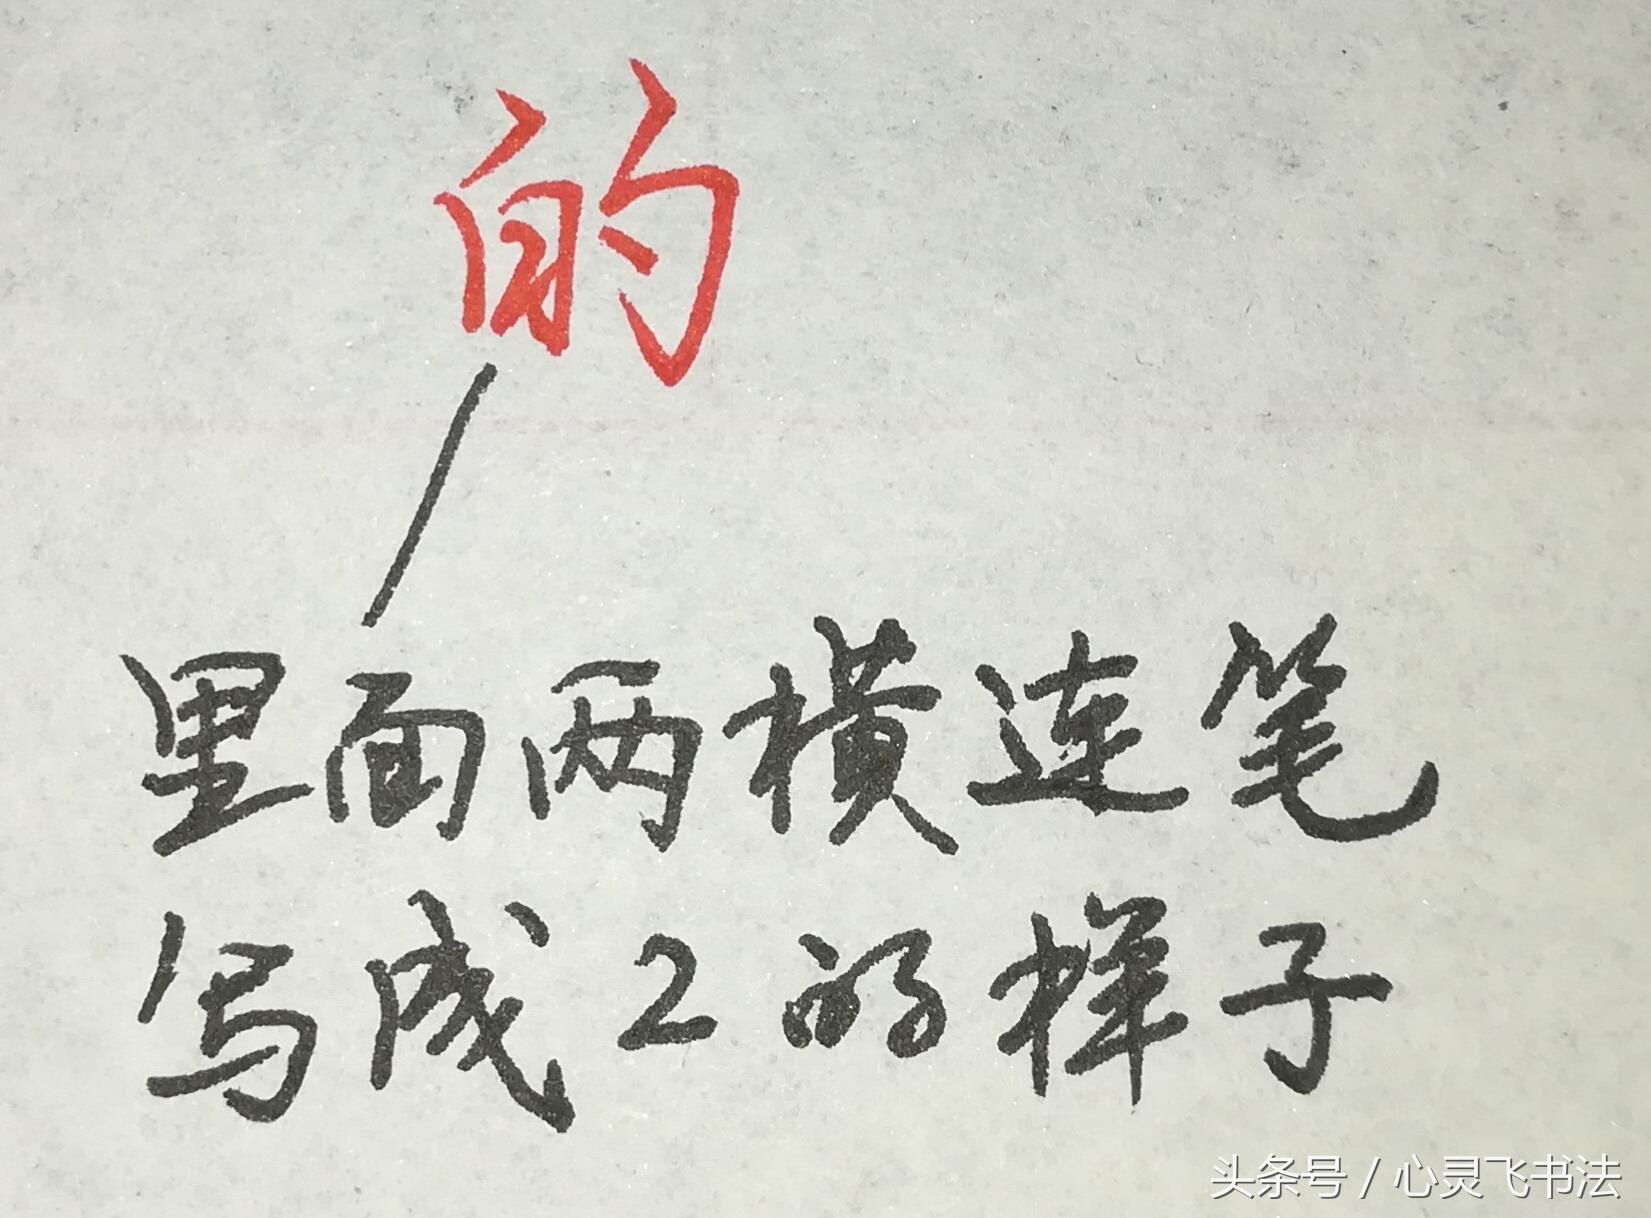 的
里面两横连笔
写成2的样子
头条号 / 心灵飞书法